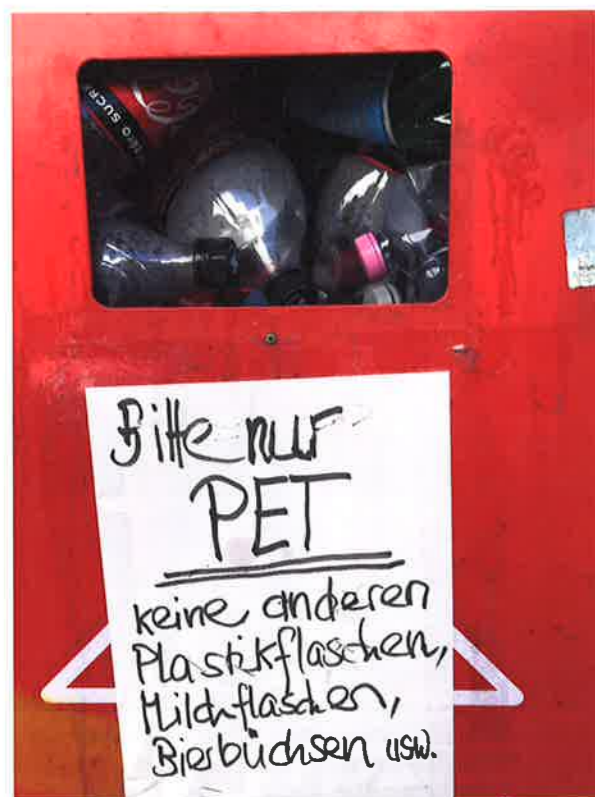 ZÉRO SUCR
Bitte nur
PET
keine anderen
Plastikflaschen,
Milchflaschen,
Bierbüchsen usw.